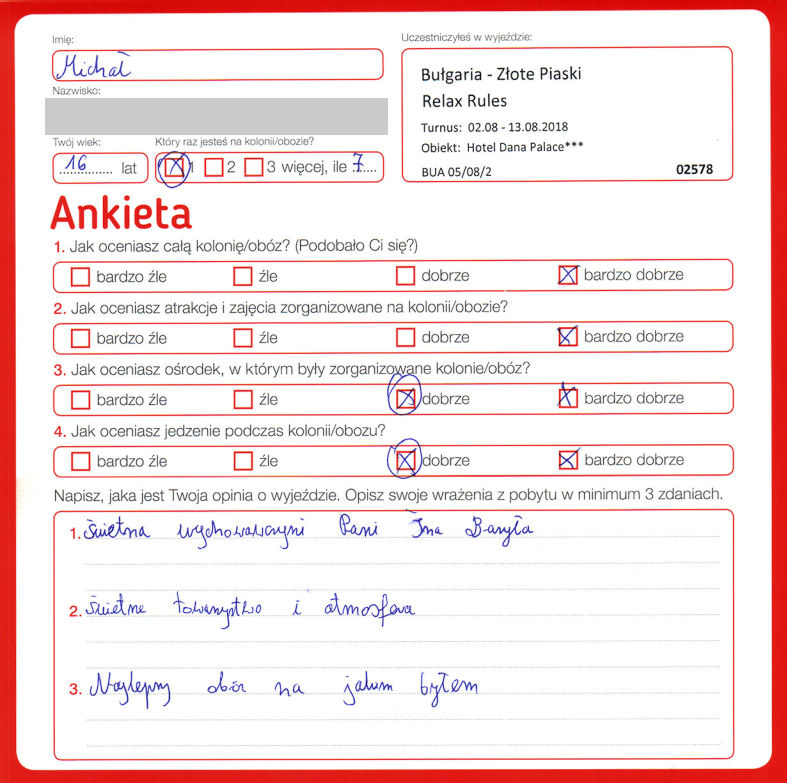 Imię:
Michał
Nazwisko:
Twój wiek:
16 lat
Który raz jesteś na kolonii/obozie?
1 2 3 więcej, ile 7
Uczestniczyłeś w wyjeździe:
Bułgaria - Złote Piaski
Relax Rules
Turnus: 02.08 - 13.08.2018
Obiekt: Hotel Dana Palace***
BUA 05/08/2 02578
Ankieta
1. Jak oceniasz całą kolonię/obóz? (Podobało Ci się?)
bardzo źle źle dobrze bardzo dobrze
2. Jak oceniasz atrakcje i zajęcia zorganizowane na kolonii/obozie?
bardzo źle źle dobrze bardzo dobrze
3. Jak oceniasz ośrodek, w którym były zorganizowane kolonie/obóz?
bardzo źle źle dobrze bardzo dobrze
4. Jak oceniasz jedzenie podczas kolonii/obozu?
bardzo źle źle dobrze bardzo dobrze
Napisz, jaka jest Twoja opinia o wyjeździe. Opisz swoje wrażenia z pobytu w minimum 3 zdaniach.
1. Świetna wychowawczyni Pani Ina Baryła
2. Świetne towarzystwo i atmosfera
3. Najlepszy obóz na jakim byłem